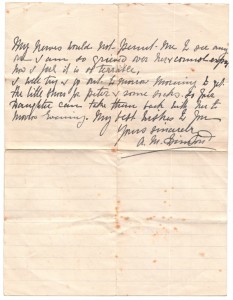 My nerves would not permit me to see any
one I am so grieved over her
how I feel it is so terrible,
I will try & go out tomorrow morning to get
the little shoes for Peter & some socks. So your
daughter can take them back with her to
morrow evening. My best wishes to you
Yours sincerely
A. M.